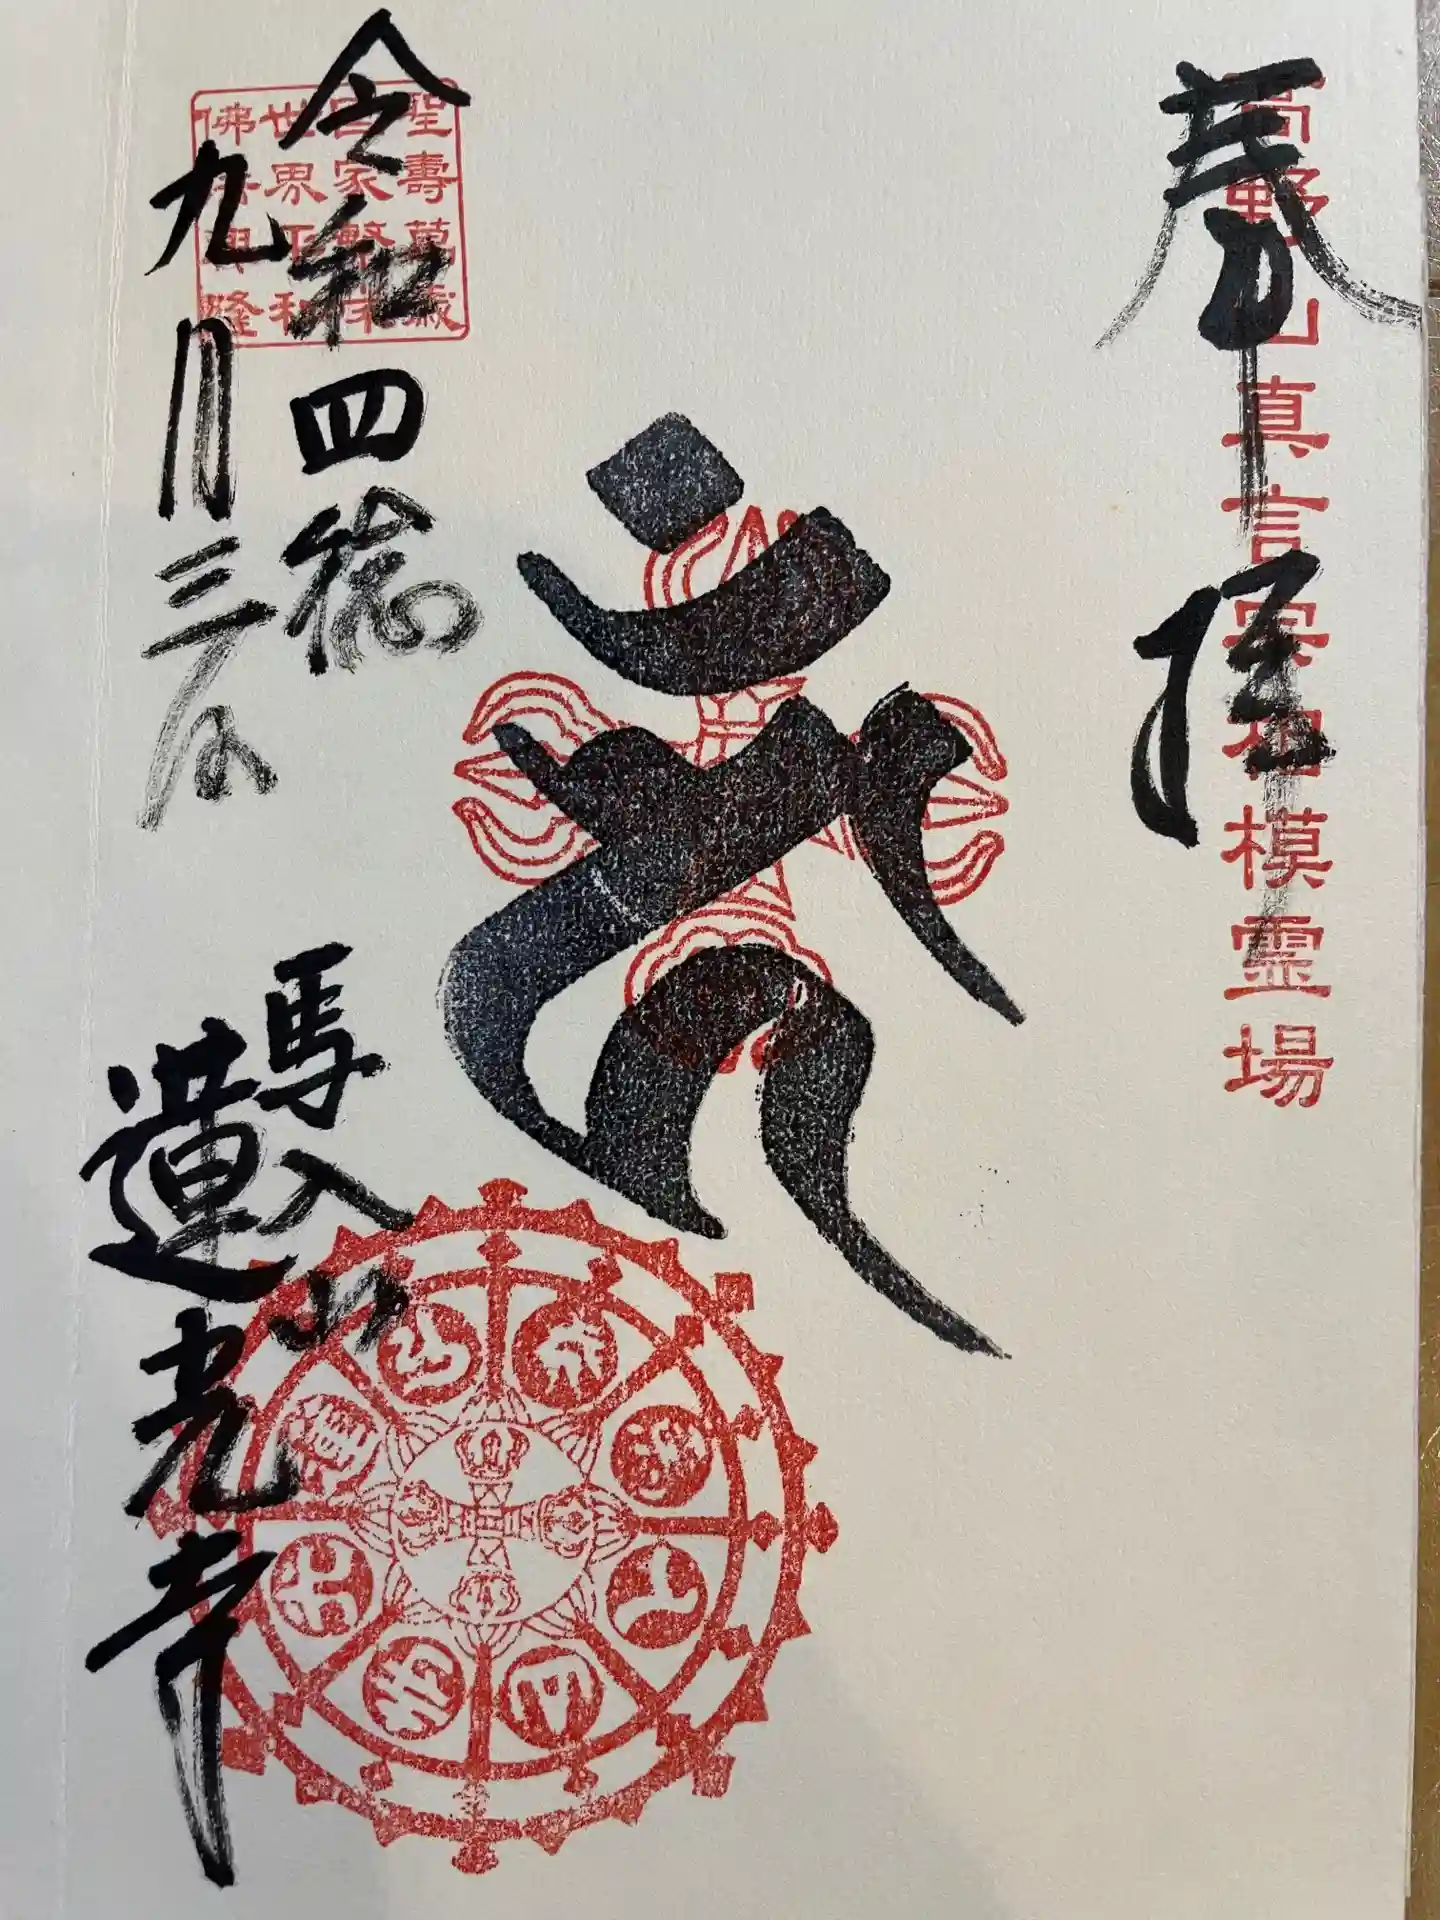 高野山真言宗相模霊場
奉拝
聖壽萬歳
家繁
世界平和
佛興隆
令和四
九月三日
馬入山
蓮光寺